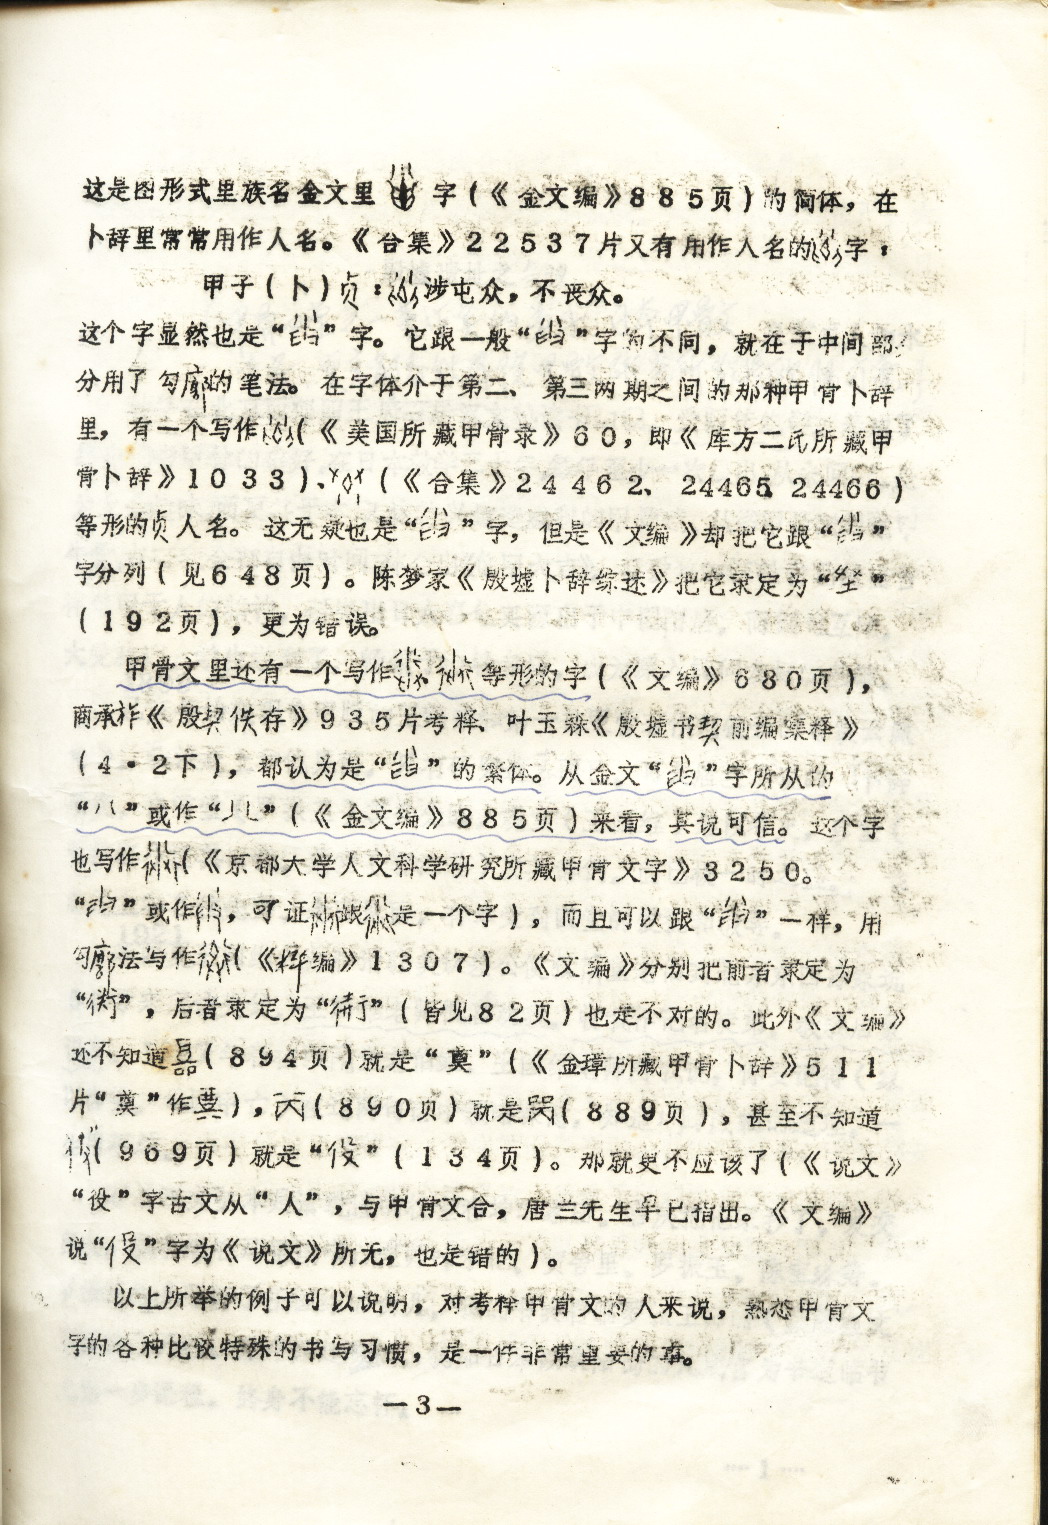 这是图形式里族名金文里 字(《金文编》885页)的简体，在
卜辞里常常用作人名。《合集》22537片又有用作人名的 字：
甲子(卜)贞： 涉屯众，不丧众。
这个字显然也是“ ”字。它跟一般“ ”字的不同，就在于中间部
分用了勾廓的笔法。在字体介于第二、第三两期之间的那种甲骨卜辞
里，有一个写作 (《美国所藏甲骨录》60，即《库方二氏所藏甲
骨卜辞》1033)、 (《合集》24462、24465、24466)
等形的贞人名。这无疑也是“ ”字，但是《文编》却把它跟“ ”
字分列(见648页)。陈梦家《殷墟卜辞综述》把它隶定为“ ”
(192页)，更为错误。
甲骨文里还有一个写作 等形的字(《文编》680页)，
商承祚《殷契佚存》935片考释、叶玉森《殷墟书契前编集释》
(4·2下)，都认为是“ ”的繁体。从金文“ ”字所从的
“八”或作“ ”(《金文编》885页)来看，其说可信。这个字
也写作 (《京都大学人文科学研究所藏甲骨文字》3250。
“ ”或作 ，可证 跟 是一个字)，而且可以跟“ ”一样，用
勾廓法写作 (《粹编》1307)。《文编》分别把前者隶定为
“ ”，后者隶定为“ ”(皆见82页)也是不对的。此外《文编》
还不知道 (894页)就是“奠”(《金璋所藏甲骨卜辞》511
片“奠”作 )， (890页)就是 (889页)，甚至不知道
(969页)就是“役”(134页)。那就更不应该了(《说文》
“役”字古文从“人”，与甲骨文合，唐兰先生早已指出。《文编》
说“ ”字为《说文》所无，也是错的)。
以上所举的例子可以说明，对考释甲骨文的人来说，熟悉甲骨文
字的各种比较特殊的书写习惯，是一件非常重要的事。
—3—